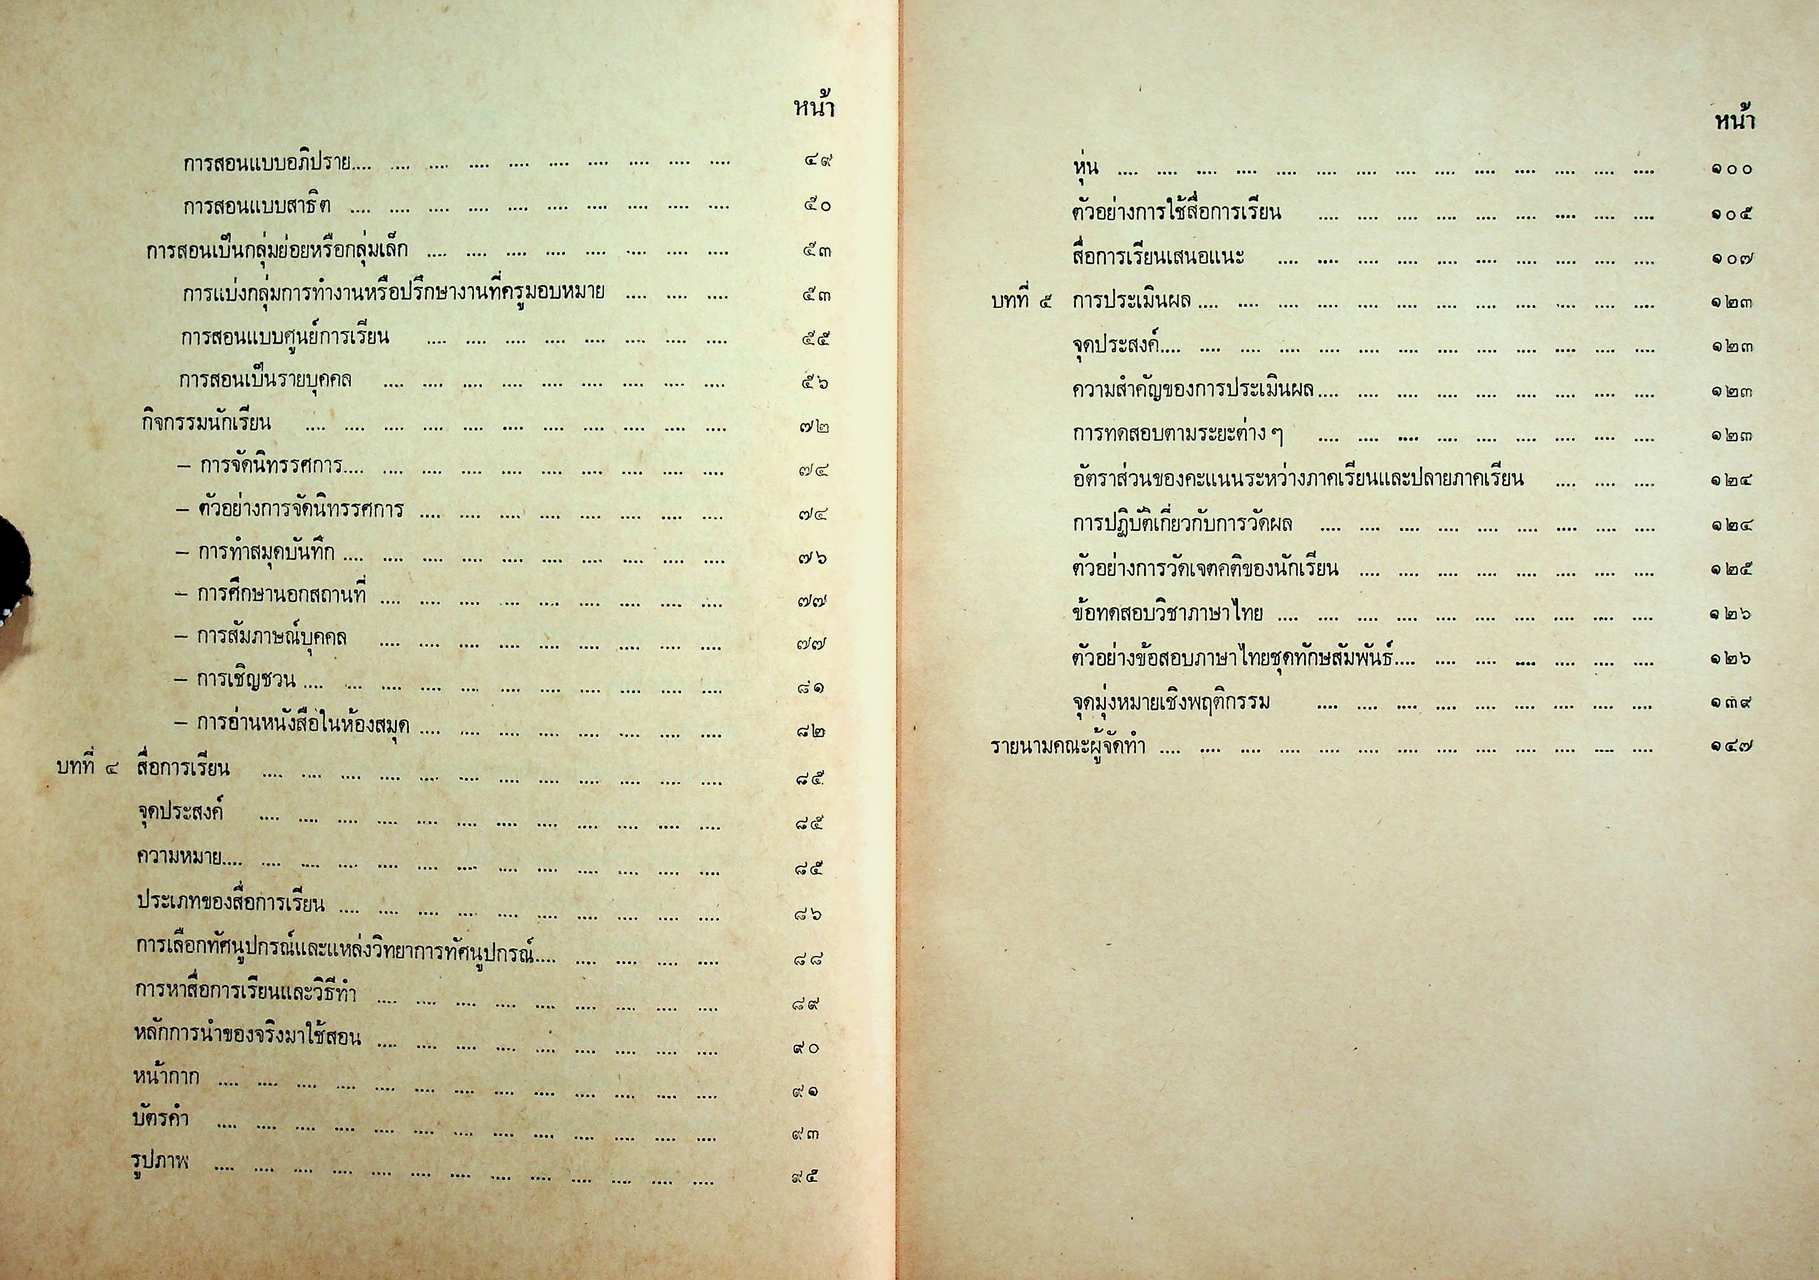 หน้า
การสอนแบบอภิปราย.... .... .... .... .... .... .... .... .... .... ๔๙
การสอนแบบสาธิต .... .... .... .... .... .... .... .... .... .... ๕๐
การสอนเป็นกลุ่มย่อยหรือกลุ่มเล็ก .... .... .... .... .... .... .... .... ๕๓
การแบ่งกลุ่มการทำงานหรือปรึกษางานที่ครูมอบหมาย .... .... .... ๕๓
การสอนแบบศูนย์การเรียน .... .... .... .... .... .... .... .... ๕๕
การสอนเป็นรายบุคคล .... .... .... .... .... .... .... .... .... ๕๖
กิจกรรมนักเรียน .... .... .... .... .... .... .... .... .... .... .... ๗๒
– การจัดนิทรรศการ.... .... .... .... .... .... .... .... .... .... ๗๔
– ตัวอย่างการจัดนิทรรศการ .... .... .... .... .... .... .... .... ๗๔
– การทำสมุดบันทึก .... .... .... .... .... .... .... .... .... .... ๗๖
– การศึกษานอกสถานที่ .... .... .... .... .... .... .... .... .... ๗๗
– การสัมภาษณ์บุคคล .... .... .... .... .... .... .... .... .... ๗๗
– การเชิญชวน .... .... .... .... .... .... .... .... .... .... .... ๘๑
– การอ่านหนังสือในห้องสมุด .... .... .... .... .... .... .... .... ๘๒
บทที่ ๔ สื่อการเรียน .... .... .... .... .... .... .... .... .... .... .... .... ๘๕
จุดประสงค์ .... .... .... .... .... .... .... .... .... .... .... .... ๘๕
ความหมาย.... .... .... .... .... .... .... .... .... .... .... .... .... ๘๕
ประเภทของสื่อการเรียน .... .... .... .... .... .... .... .... .... .... ๘๖
การเลือกทัศนูปกรณ์และแหล่งวิทยาการทัศนูปกรณ์.... .... .... .... .... ๘๘
การหาสื่อการเรียนและวิธีทำ .... .... .... .... .... .... .... .... .... ๘๙
หลักการนำของจริงมาใช้สอน .... .... .... .... .... .... .... .... .... ๙๐
หน้ากาก .... .... .... .... .... .... .... .... .... .... .... .... .... ๙๑
บัตรคำ .... .... .... .... .... .... .... .... .... .... .... .... .... ๙๓
รูปภาพ .... .... .... .... .... .... .... .... .... .... .... .... .... ๙๕
หน้า
หุ่น .... .... .... .... .... .... .... .... .... .... .... .... .... .... ๑๐๐
ตัวอย่างการใช้สื่อการเรียน .... .... .... .... .... .... .... .... .... ๑๐๕
สื่อการเรียนเสนอแนะ .... .... .... .... .... .... .... .... .... .... ๑๐๗
บทที่ ๕ การประเมินผล .... .... .... .... .... .... .... .... .... .... .... .... ๑๒๓
จุดประสงค์.... .... .... .... .... .... .... .... .... .... .... .... .... ๑๒๓
ความสำคัญของการประเมินผล.... .... .... .... .... .... .... .... .... ๑๒๓
การทดสอบตามระยะต่าง ๆ .... .... .... .... .... .... .... .... .... ๑๒๓
อัตราส่วนของคะแนนระหว่างภาคเรียนและปลายภาคเรียน .... .... .... ๑๒๔
การปฏิบัติเกี่ยวกับการวัดผล .... .... .... .... .... .... .... .... .... ๑๒๔
ตัวอย่างการวัดเจตคติของนักเรียน .... .... .... .... .... .... .... .... ๑๒๕
ข้อทดสอบวิชาภาษาไทย .... .... .... .... .... .... .... .... .... .... ๑๒๖
ตัวอย่างข้อสอบภาษาไทยชุดทักษสัมพันธ์.... .... .... .... .... .... .... ๑๒๖
จุดมุ่งหมายเชิงพฤติกรรม .... .... .... .... .... .... .... .... .... ๑๓๙
รายนามคณะผู้จัดทำ .... .... .... .... .... .... .... .... .... .... .... .... .... ๑๔๗